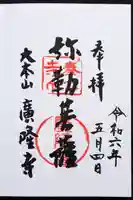 奉拝
令和六年
五月四日
弥勒菩薩
大本山
廣隆寺